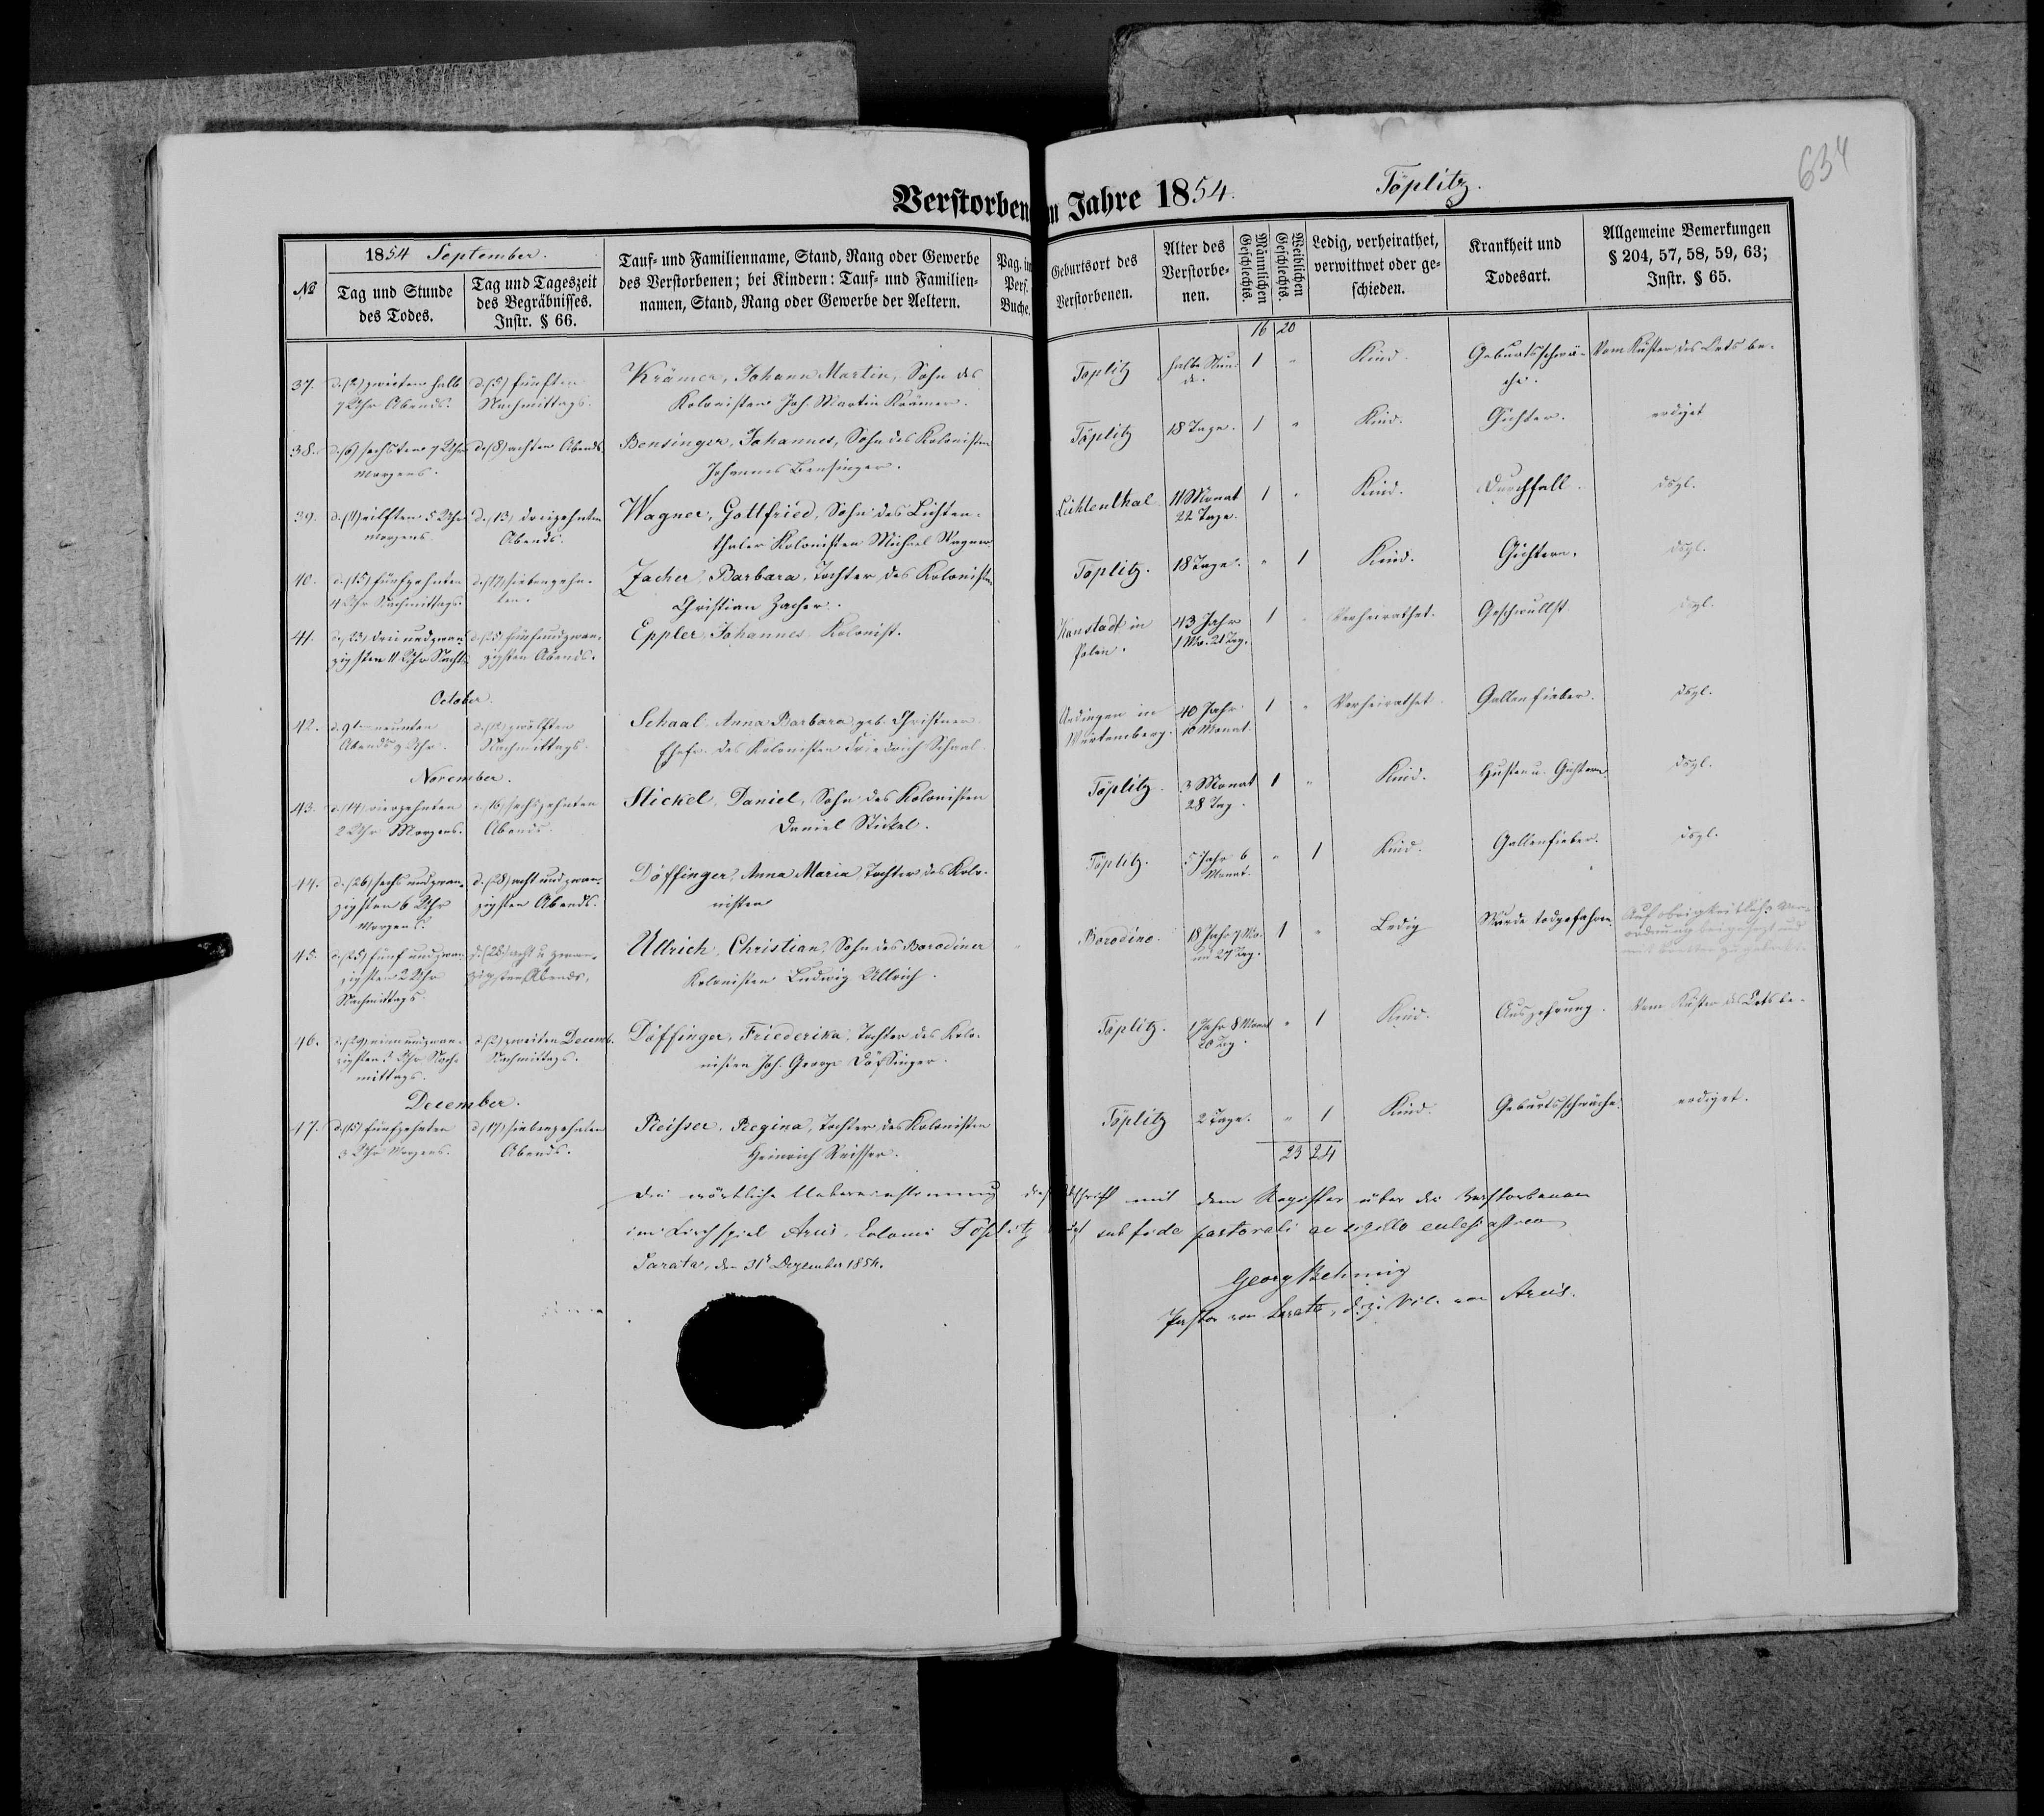 634
Verstorben
n Jahre 1854.
Töplitz.
№
1854 September.
Tag und Stunde
des Todes.
Tag und Tageszeit
des Begräbnisses.
Instr. § 66.
Tauf- und Familienname, Stand, Rang oder Gewerbe
des Verstorbenen; bei Kindern: Tauf- und Familien-
namen, Stand, Rang oder Gewerbe der Aeltern.
Pag. im
Pers.
Buche.
Geburtsort des
Verstorbenen.
Alter des
Verstorbe-
nen.
Männlichen
Geschlechts.
Weiblichen
Geschlechts.
Ledig, verheirathet,
verwittwet oder ge-
schieden.
Krankheit und
Todesart.
Allgemeine Bemerkungen
§ 204, 57, 58, 59, 63;
Instr. § 65.
16 20
37.
d. (2) zweiten halb
7 Uhr Abends.
d. (5) fünften
Nachmittags.
Krämer, Johann Martin, Sohn des
Kolonisten Joh. Martin Krämer.
Töplitz
halbe Stun-
de.
1 "
Kind.
Geburtsschwä-
che.
Vom Küster des Orts be-
38.
d. (6) sechsten 7 Uhr
Morgens.
d. (8) achten Abends.
Bensinger, Johannes, Sohn des Kolonisten
Johannes Bensinger.
Töplitz
18 Tage.
1 "
Kind.
Gichter.
erdiget
39.
d. (11) eilften 5 Uhr
Morgens.
d. (13) dreizehnten
Abends.
Wagner, Gottfried, Sohn des Lichten-
thaler Kolonisten Michael Wagner.
Lichtenthal
11 Monat
22 Tage.
1 "
Kind.
Durchfall.
dsgl.
40.
d. (15) fünfzehnten
4 Uhr Nachmittags.
d. (17) siebenzehn-
ten.
Zacher, Barbara, Tochter des Kolonisten
Christian Zacher.
Töplitz.
18 Tage.
" 1
Kind.
Gichtern.
dsgl.
41.
d. (23) drei und zwan-
zigsten 11 Uhr Nachts
d. (25) fünfundzwan-
zigsten Abends.
Eppler, Johannes Kolonist.
Kanstadt in
Polen.
43 Jahr
1 Mo. 21 Tag.
1 "
Verheirathet.
Geschwullst.
dsgl.
October.
42.
d. 9ten neunten
Abends 9 Uhr.
d. (12) zwölften
Nachmittags.
Schaal Anna Barbara geb. Christner
Ehefr. des Kolonisten Friedrich Schaal.
in
Würtemberg.
40 Jahr
10 Monat.
1 "
Verheirathet.
Gallenfieber.
dsgl.
November.
43.
d. (14) vierzehnten
2 Uhr Morgens.
d. (16) sechszehnten
Abends.
Stickel, Daniel, Sohn des Kolonisten
Daniel Stickel.
Töplitz.
3 Monat
28 Tag.
1 "
Kind.
Husten u. Gichtern.
dsgl.
44.
d. (26) sechs und zwan-
zigsten 6 Uhr
Morgens.
d. (28) acht und zwan-
zigsten Abends.
Döffinger, Anna Maria, Tochter des Kolo-
nisten
Töplitz.
5 Jahr 6
Monat.
" 1
Kind.
Gallenfieber.
dsgl.
45.
d. (25) fünf und zwan-
zigsten 2 Uhr
Nachmittags.
d. (28) acht u. zwan-
zigsten Abends.
Ullrich, Christian, Sohn des Borodiner
Kolonisten Ludwig Ullrich.
Borodino.
18 Jahr 7 Mo.
27 Tag.
1 "
Ledig
Wurde todgefahren.
Auf obrigkeitliche Ver-
ordnung
46.
d. (29) neun und zwan-
zigsten Uhr Nach-
mittags.
d. (2) zweiten Decemb.
Nachmittags.
Döffinger, Friederika, Tochter des Kolo-
nisten Joh. Georg Döffinger.
Töplitz.
1 Jahr 8 Monat
20 Tag.
" 1
Kind.
Auszehrung.
Vom Küster des Orts be-
December.
47.
d. (15) fünfzehnten
3 Uhr Morgens.
d. (17) siebenzehnten
Abends.
Reisser, Regina, Tochter des Kolonisten
Heinrich Reisser.
Töplitz
2 Tage.
" 1
Kind.
Geburtsschwäche.
erdiget.
23 24
Die wörtliche Uebereinstimmung mit dem Register über die Verstorbenen
im Kirchspiel Arcis, Colonie Töplitz sub fide pastorali ac sigillo ecclesiastico
Sarata, den 31t Dezember 1854.
Georg Behning
Pastor von Sarata, d. z. Vic. von Arcis.